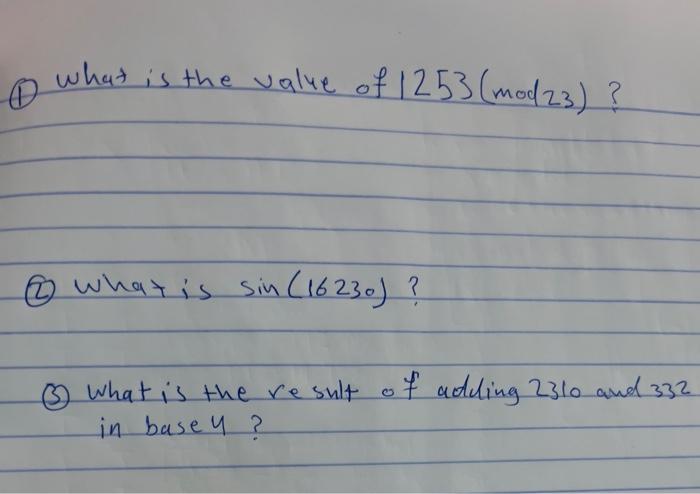 ① what is the value of 1253(mod23) ?
② what is sin(16230) ?
③ what is the result of adding 2310 and 332
in base 4 ?